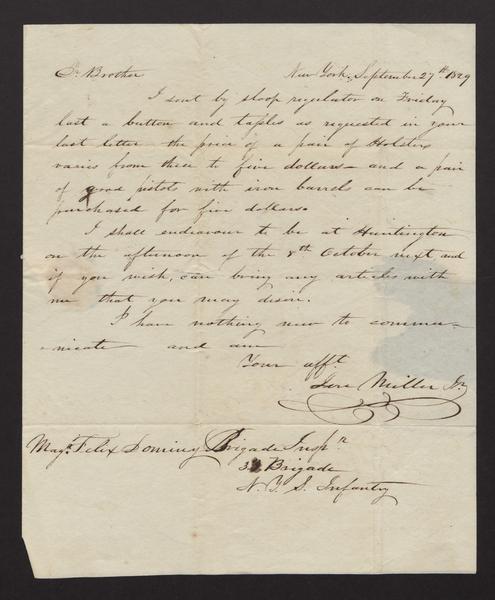 Dr Brother New York September 27th 1829
I sent by sloop regulator on Friday
last a button and as requested in your
last letter the price of a pair of Holsters
varies from three to five dollars and a pair
of good pistols with iron barrels can be
purchased for five dollars.
I shall endeavour to be at Huntington
on the afternoon of the 8th October next and
if you wish, can bring any articles with
me that you may desire.
I have nothing new to commu=
=nicate and am
Your afft.
Jere Miller Jr
Majr. Felix Dominy Brigade Inspr
Brigade
N. Y. S. Infantry